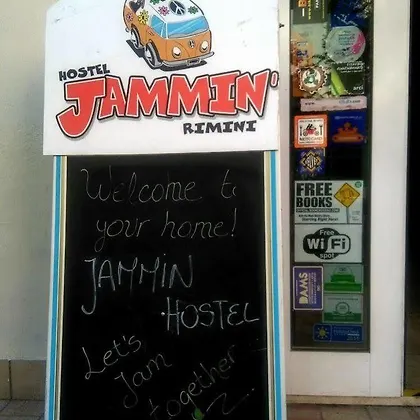 HOSTEL
JAMMIN'
RIMINI
Welcome to
your home!
JAMMIN
HOSTEL
Let's
Jam
together
FREE
BOOKS
Free
Wi Fi
spot
DAMS